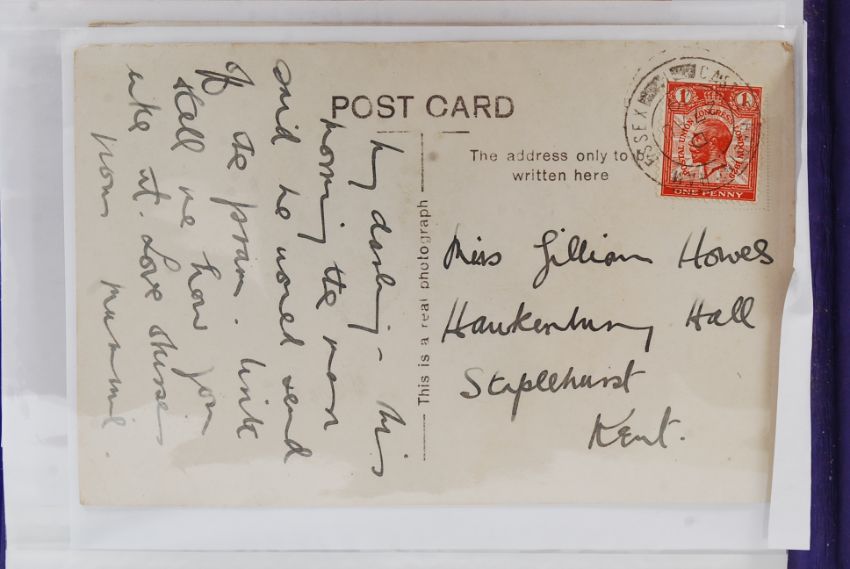 POST CARD
The address only to be
written here
This is a real photograph
1 1
POSTAL UNION CONGRESS LONDON
ONE PENNY
ESSEX
Miss Gillian Howes
Hawkenbury Hall
Staplehurst
Kent.
My darling - This
morning the man
said he would send
off the pram. Write
& tell me how you
like it. Love & kisses
from mummie.